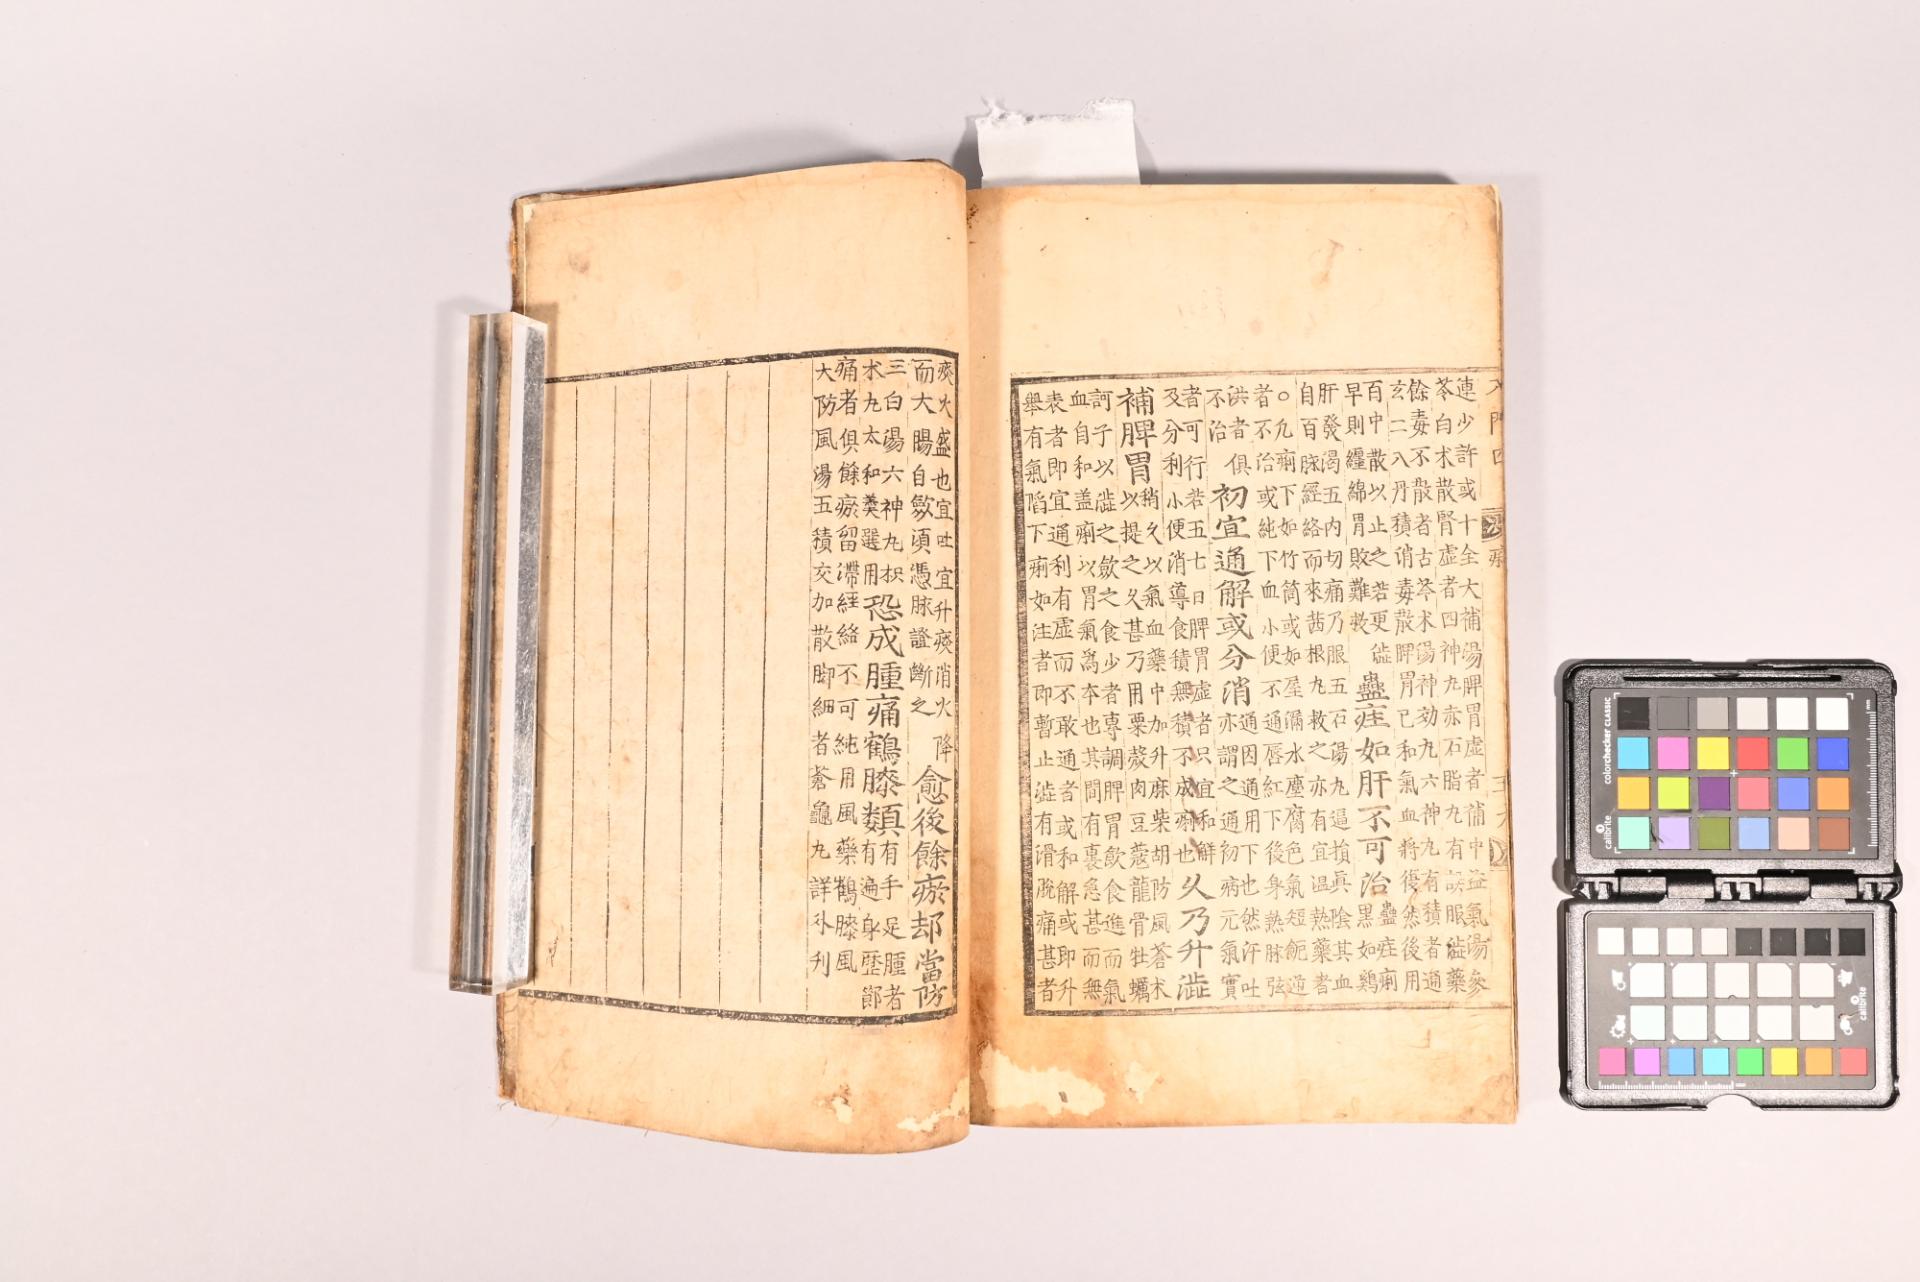 連少許或十全大補湯脾胃虛者補中益氣湯參
苓白朮散腎虛者四神丸赤石脂丸有誤服澁藥
餘毒不散者古苓朮湯神効丸六神丸有積者通
玄二入丹積消毒散脾胃已和氣血將復然後用
百中散以止之若更澁
早則纏綿胃敗難救
蠱疰如肝不可治
蠱疰痢
黑如鷄
肝發渴五內切痛乃服五石湯丸逼損眞陰其血
自百脉經絡而來茜根丸救之亦有宜温熱藥者
○凡痢下如竹筒或如屋漏水塵腐色氣短呃逆
者不治或純下血小便不通唇紅下後身熱脉弦
洪者俱
不治
初宜通解或分消
通因通用下也然汗吐
亦謂之通初病元氣實
者可行若五七日脾胃虛者只宜和解
及分利小便消導食積無積不成痢也
久乃升澁
補脾胃
稍久以氣血藥中加升麻柴胡防風蒼朮
以提之久甚乃用栗殼肉豆蔲龍骨牡蠣
訶子以澁之歛之食少者專調脾胃飮食進而氣
血自和盖痢以胃氣爲本也其間有裏急甚而無
表者即宜通利有虛而不敢通者或和解或即升
舉有氣陷下痢如注者即暫止澁有滑脫痛甚者
痰火盛也宜吐宜升痰消火降
而大腸自斂須憑脉證斷之
愈後餘瘀却當防
三白湯六神丸枳
朮丸太和羹選用
恐成腫痛鶴膝類
有手足腫者
有遍身歷節
痛者俱餘瘀留滯經絡不可純用風藥鶴膝風
大防風湯五積交加散脚細者蒼龜丸詳外刋